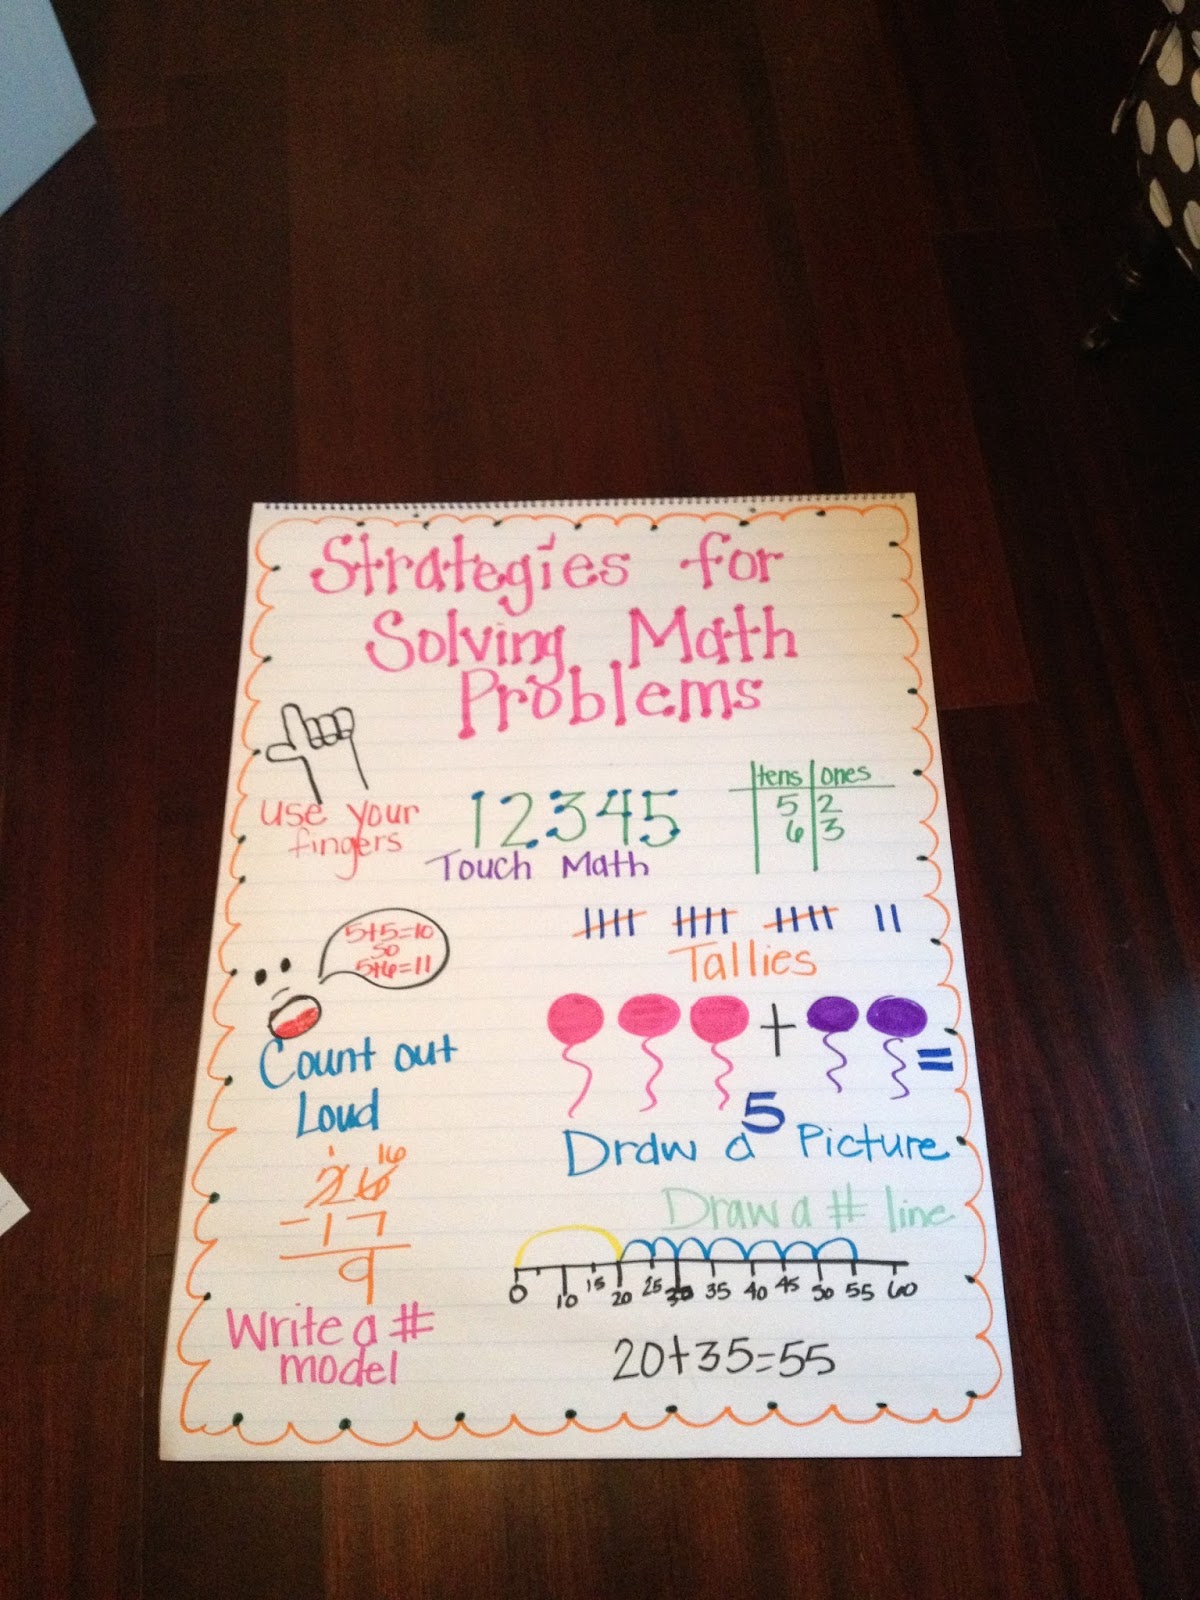 Strategies for
Solving Math
Problems
use your
fingers
1 2 3 4 5
Touch Math
tens ones
5 2
6 3
5+5=10
so
5+6=11
Count out
Loud
Tallies
+
=
5
Draw a Picture
1 16
26
-17
9
Write a #
model
Draw a # line
0 10 15 20 25 30 35 40 45 50 55 60
20+35=55